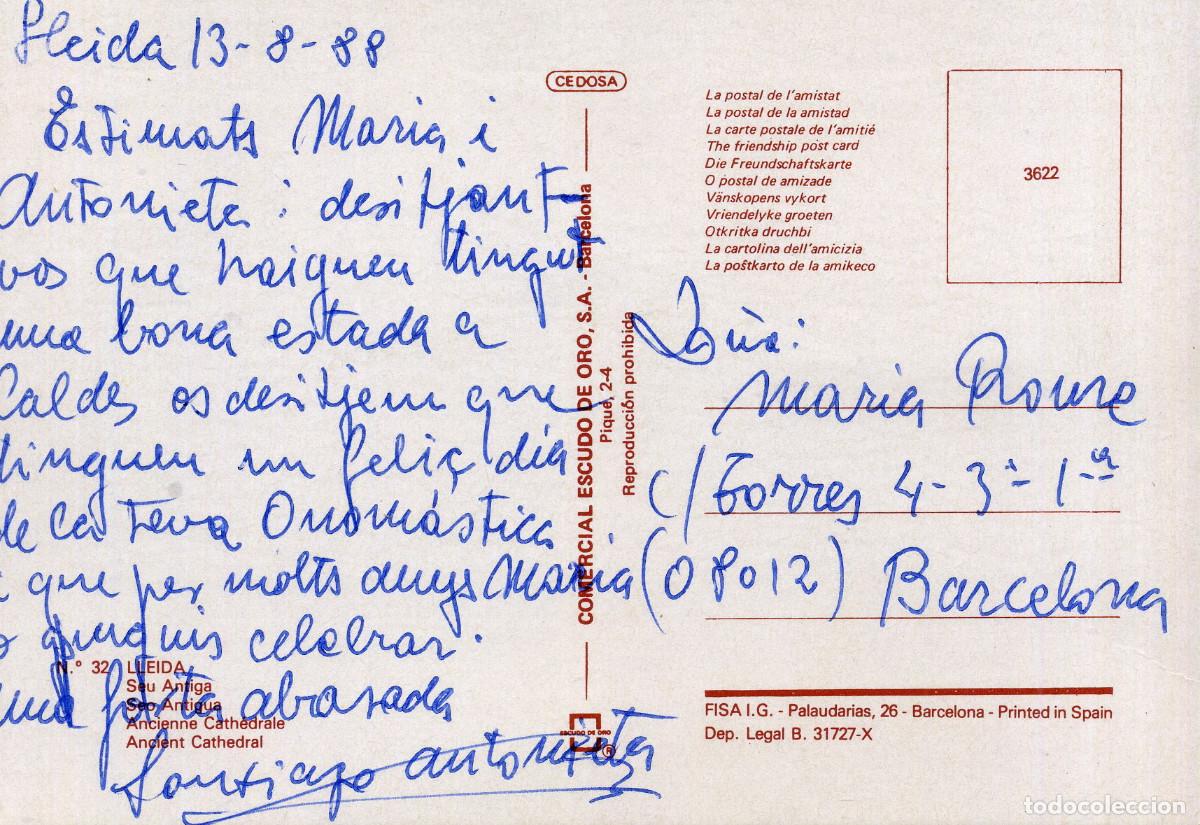 Lleida 13-8-88
Estimats Maria i
Antonieta: desitjant-
vos que haiguen tingut
una bona estada a
Caldes os desitjem que
tinguen un feliç día
de la Teva Onomástica
i que per molts anys Maria
celebrar.
una forta abrasada
Santiago Antonieta
CEDOSA
COMERCIAL ESCUDO DE ORO, S.A. - Barcelona
Pique, 2-4
Reproducción prohibida
N.º 32 LLEIDA
Seu Antiga
Seo Antigua
Ancienne Cathédrale
Ancient Cathedral
ESCUDO DE ORO
®
La postal de l'amistat
La postal de la amistad
La carte postale de l'amitié
The friendship post card
Die Freundschaftskarte
O postal de amizade
Vänskopens vykort
Vriendelyke groeten
Otkritka druchbi
La cartolina dell'amicizia
La poŝtkarto de la amikeco
3622
Maria Roure
c/ Torres 4-3º-1ª
(08012) Barcelona
FISA I.G. - Palaudarias, 26 - Barcelona - Printed in Spain
Dep. Legal B. 31727-X
todocoleccion